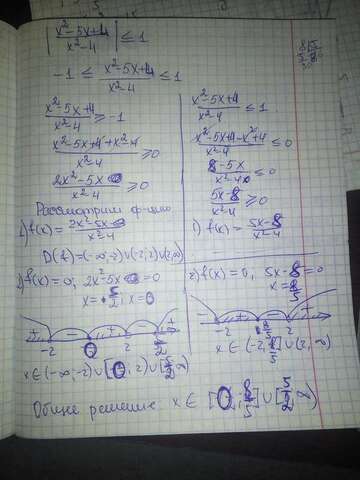 |x²-5x+4 / x²-4| ≤ 1
-1 ≤ x²-5x+4 / x²-4 ≤ 1
x²-5x+4 / x²-4 ≥ -1
x²-5x+4+x²-4 / x²-4 ≥ 0
2x²-5x / x²-4 ≥ 0
Рассмотрим ф-цию
1) f(x) = 2x²-5x / x²-4
D(f) = (-∞;-2)∪(-2;2)∪(2;∞)
2) f(x) = 0; 2x²-5x = 0
x = 5/2; x = 0
+ - + - +
-2 0 2 5/2
x ∈ (-∞;-2)∪[0;2)∪[5/2;∞)
x²-5x+4 / x²-4 ≤ 1
x²-5x+4-x²+4 / x²-4 ≤ 0
8-5x / x²-4 ≤ 0
5x-8 / x²-4 ≥ 0
1) f(x) = 5x-8 / x²-4
2) f(x) = 0; 5x-8 = 0
x = 8/5
- + - +
-2 8/5 2
x ∈ (-2;8/5]∪(2;∞)
Общее решение x ∈ [0;8/5]∪[5/2;∞)